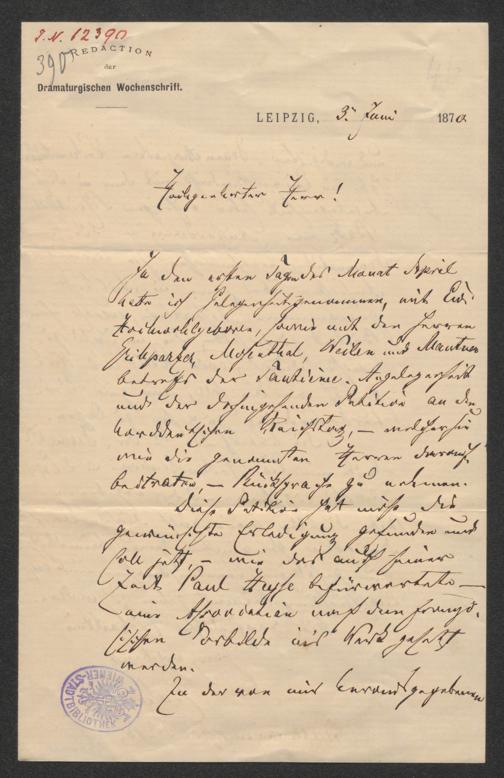 I.N. 12390
390
REDACTION
der
Dramaturgischen Wochenschrift.
LEIPZIG, 3. Juni 1870
Hochgeehrter Herr!
In den ersten Tagen des Monat April
hatte ich Gelegenheit genommen, mit Euer
Hochwohlgeboren, sowie mit den Herren
Grillparzer, Mosenthal, Weilen und Mautner
betreffs der Tantième-Angelegenheit
und der dahingehenden Petition an den
Norddeutschen Reichstag, – welcher Sie
wie die genannten Herren
beitraten, – Rücksprache zu nehmen.
Diese Petition hat nicht die
gewünschte Erledigung gefunden und
soll jetzt, – wie das auch seiner
Zeit Paul Heyse befürwortete –
eine Association nach dem franzö-
sischen Vorbilde ins Werk gesetzt
werden.
In der von mir herausgegebenen
WIENER-STADTBIBLIOTHEK